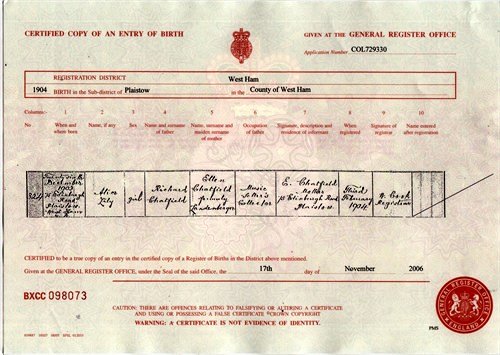 CERTIFIED COPY OF AN ENTRY OF BIRTH
GIVEN AT THE GENERAL REGISTER OFFICE
Application Number COL729330
REGISTRATION DISTRICT West Ham
1904 BIRTH in the Sub-district of Plaistow in the County of West Ham
Columns:- 1 2 3 4 5 6 7 8 9 10
No When and where born Name, if any Sex Name and surname of father Name, surname and maiden surname of mother Occupation of father Signature, description and residence of informant When registered Signature of registrar Name entered after registration
1903
Road
Plaistow
Alice
Lily
Girl
Richard
Chatfield
Ellen
Chatfield
formerly
Music
Seller's
Collector
E. Chatfield
Mother
Road
Plaistow
Third
February
1904
Cook
Registrar
CERTIFIED to be a true copy of an entry in the certified copy of a Register of Births in the District above mentioned.
Given at the GENERAL REGISTER OFFICE, under the Seal of the said Office, the 17th day of November 2006
BXCC 098073
CAUTION: THERE ARE OFFENCES RELATING TO FALSIFYING OR ALTERING A CERTIFICATE
AND USING OR POSSESSING A FALSE CERTIFICATE ©CROWN COPYRIGHT
WARNING: A CERTIFICATE IS NOT EVIDENCE OF IDENTITY.
GENERAL REGISTER OFFICE
ENGLAND